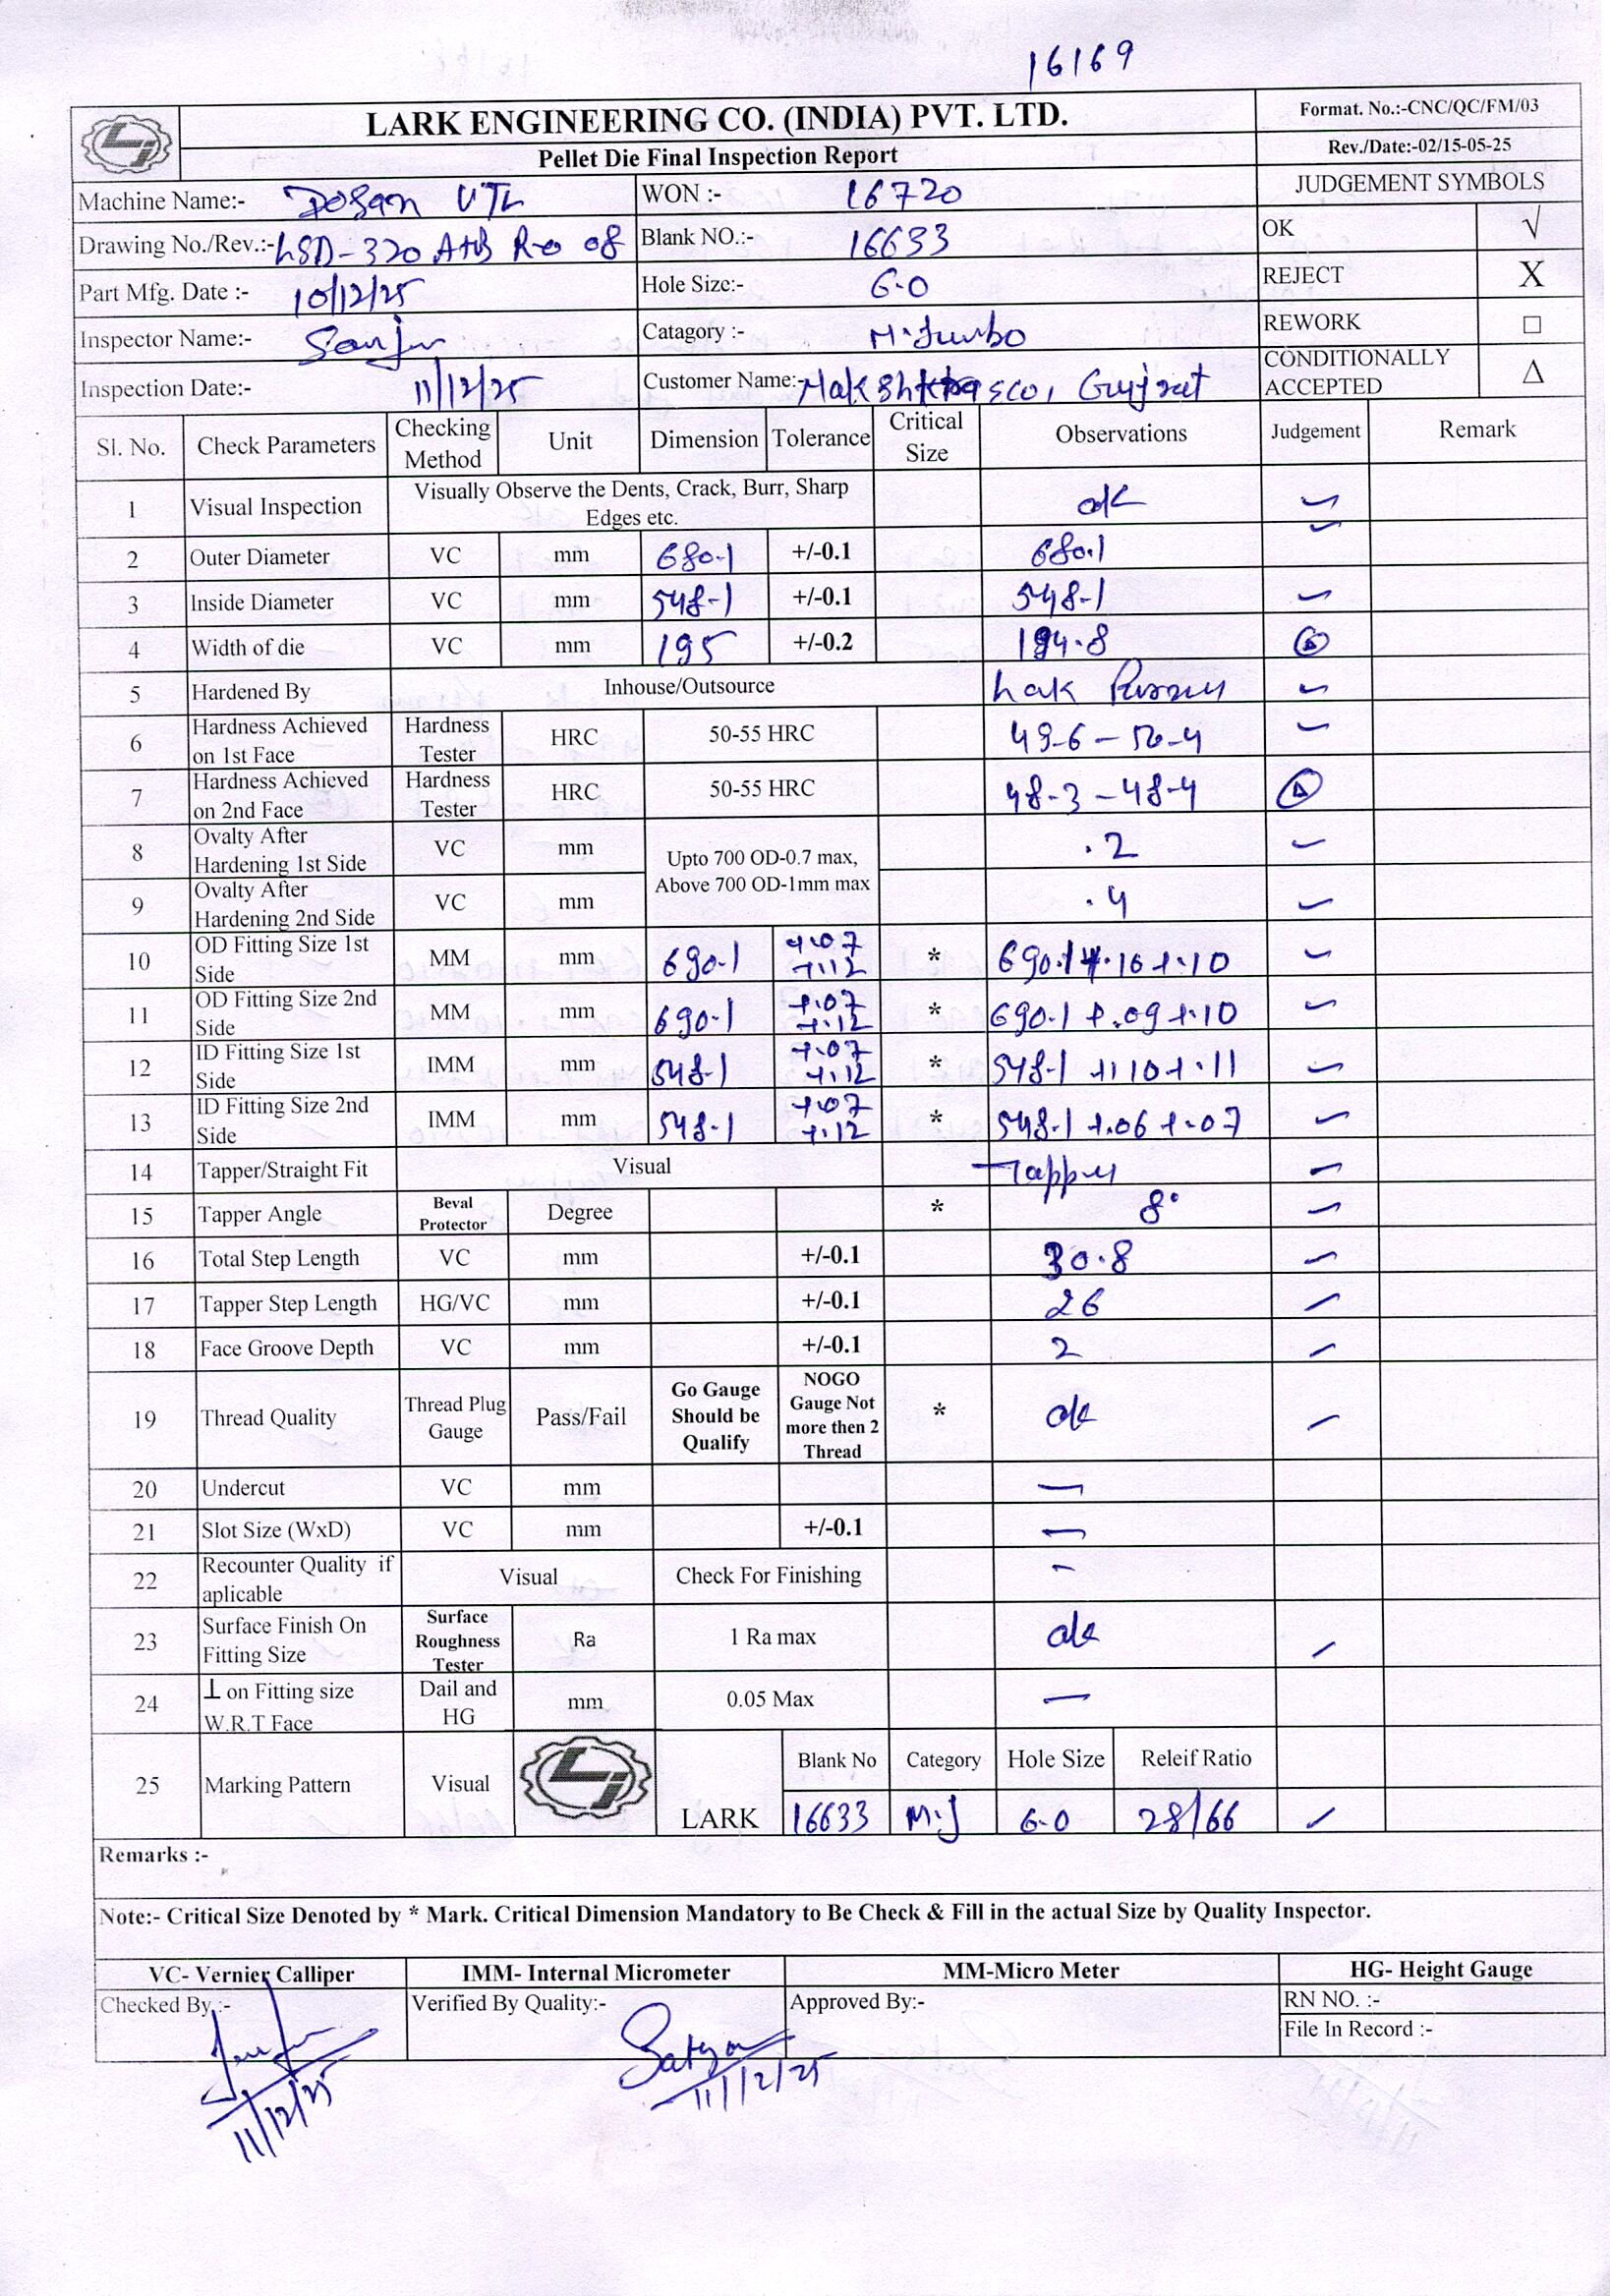 16169
LARK ENGINEERING CO. (INDIA) PVT. LTD.
Format. No.:-CNC/QC/FM/03
Pellet Die Final Inspection Report
Rev./Date:-02/15-05-25
Machine Name:- Dosan VTL WON :- 16720 JUDGEMENT SYMBOLS
Drawing No./Rev.:- LSD-320 A+B R-0 08 Blank NO.:- 16633 OK √
Part Mfg. Date :- 10/12/25 Hole Size:- 6.0 REJECT X
Inspector Name:- Sanju Catagory :- M.Jumbo REWORK □
Inspection Date:- 11/12/25 Customer Name:- Gujrat CONDITIONALLY ACCEPTED Δ
Sl. No. Check Parameters Checking Method Unit Dimension Tolerance Critical Size Observations Judgement Remark
1 Visual Inspection Visually Observe the Dents, Crack, Burr, Sharp Edges etc. ok ✓
2 Outer Diameter VC mm 680.1 +/-0.1 680.1 ✓
3 Inside Diameter VC mm 548.1 +/-0.1 548.1 ✓
4 Width of die VC mm 195 +/-0.2 194.8
5 Hardened By Inhouse/Outsource ✓
6 Hardness Achieved on 1st Face Hardness Tester HRC 50-55 HRC 49.6 - 50.4 ✓
7 Hardness Achieved on 2nd Face Hardness Tester HRC 50-55 HRC 48.3 - 48.4 Δ
8 Ovalty After Hardening 1st Side VC mm Upto 700 OD-0.7 max, Above 700 OD-1mm max .2 ✓
9 Ovalty After Hardening 2nd Side VC mm .4 ✓
10 OD Fitting Size 1st Side MM mm 690.1 +.07 +.12 * 690.1 +.10 +.10 ✓
11 OD Fitting Size 2nd Side MM mm 690.1 +.07 +.12 * 690.1 +.09 +.10 ✓
12 ID Fitting Size 1st Side IMM mm 548.1 +.07 +.12 * 548.1 +.10 +.11 ✓
13 ID Fitting Size 2nd Side IMM mm 548.1 +.07 +.12 * 548.1 +.06 +.07 ✓
14 Tapper/Straight Fit Visual Tapper ✓
15 Tapper Angle Beval Protector Degree * 8° ✓
16 Total Step Length VC mm +/-0.1 30.8 ✓
17 Tapper Step Length HG/VC mm +/-0.1 26 ✓
18 Face Groove Depth VC mm +/-0.1 2 ✓
19 Thread Quality Thread Plug Gauge Pass/Fail Go Gauge Should be Qualify NOGO Gauge Not more then 2 Thread * ok ✓
20 Undercut VC mm —
21 Slot Size (WxD) VC mm +/-0.1 —
22 Recounter Quality if aplicable Visual Check For Finishing -
23 Surface Finish On Fitting Size Surface Roughness Tester Ra 1 Ra max ok ✓
24 ⊥ on Fitting size W.R.T Face Dail and HG mm 0.05 Max —
25 Marking Pattern Visual LARK Blank No Category Hole Size Releif Ratio
16633 M.J 6.0 28/66 ✓
Remarks :-
Note:- Critical Size Denoted by * Mark. Critical Dimension Mandatory to Be Check & Fill in the actual Size by Quality Inspector.
VC- Vernier Calliper IMM- Internal Micrometer MM-Micro Meter HG- Height Gauge
Checked By :- Verified By Quality:- Approved By:- RN NO. :-
File In Record :-
Sanju Satyam
11/12/25 11/12/25